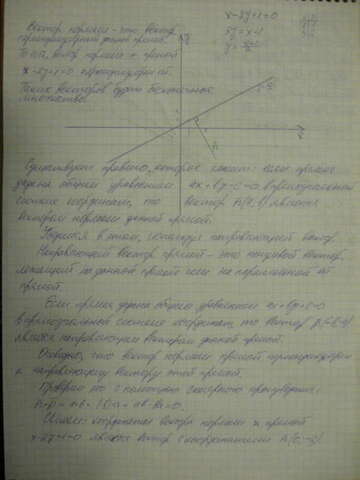 Вектор нормали - это вектор,
перпендикулярный данной прямой.
То есть, вектор нормали к прямой
x-2y+1=0 перпендикулярен ей.
Таких векторов будет бесконечное
множество.
x-2y+1=0
2y=x+1
Существует правило, которое гласит: если прямая
задана общим уравнением ax+by+c=0 в прямоугольной
системе координат, то вектор n(a,b) является
вектором нормали данной прямой.
Убедимся в этом, используя направляющий вектор.
Направляющий вектор прямой - это ненулевой вектор,
лежащий на данной прямой или на параллельной ей
прямой.
Если прямая задана общим уравнением ax+by+c=0
в прямоугольной системе координат, то вектор
является направляющим вектором данной прямой.
Очевидно, что вектор нормали прямой перпендикулярен
к направляющему вектору этой прямой.
Проверим это с помощью скалярного произведения:
координаты вектора нормали к прямой
x-2y+1=0 является вектор с координатами